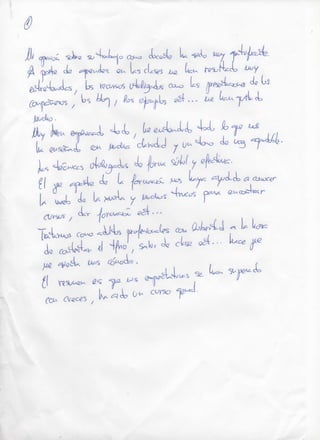 ①
Mi opinión sobre su trabajo como docente ha sido muy satisfactoria
A parte de aprender en las clases me han resultado muy
entretenidas, los recursos utilizados como las presentaciones de los
compañeros, los blog, los ejemplos est... me han gustado
mucho.
Muy bien expresado todo, he entendido todo lo que nos
ha enseñado con mucha claridad y un tono de voz agradable.
Las técnicas utilizadas de forma sútil y efectivas.
El que aparte de la formación nos haya ayudado a conocer
la web de la muela y muchos trucos para encontrar
cursos, dar formación est...
Tratarnos como adultos profesionales con libertad a la hora
de contestar el tfno, salir de clase est... hace que
me sienta más cómoda.
El resumen es que mis expectativas se han superado
con creces, ha sido un curso genial.